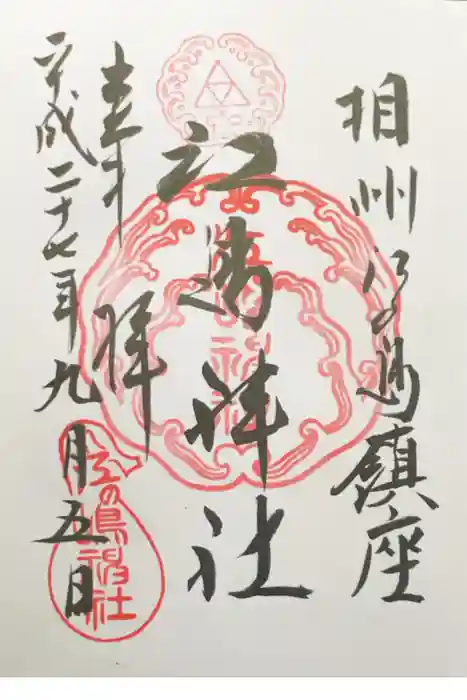 相州江の島鎮座
江島神社
奉拝
平成二十七年九月五日
江の島神社